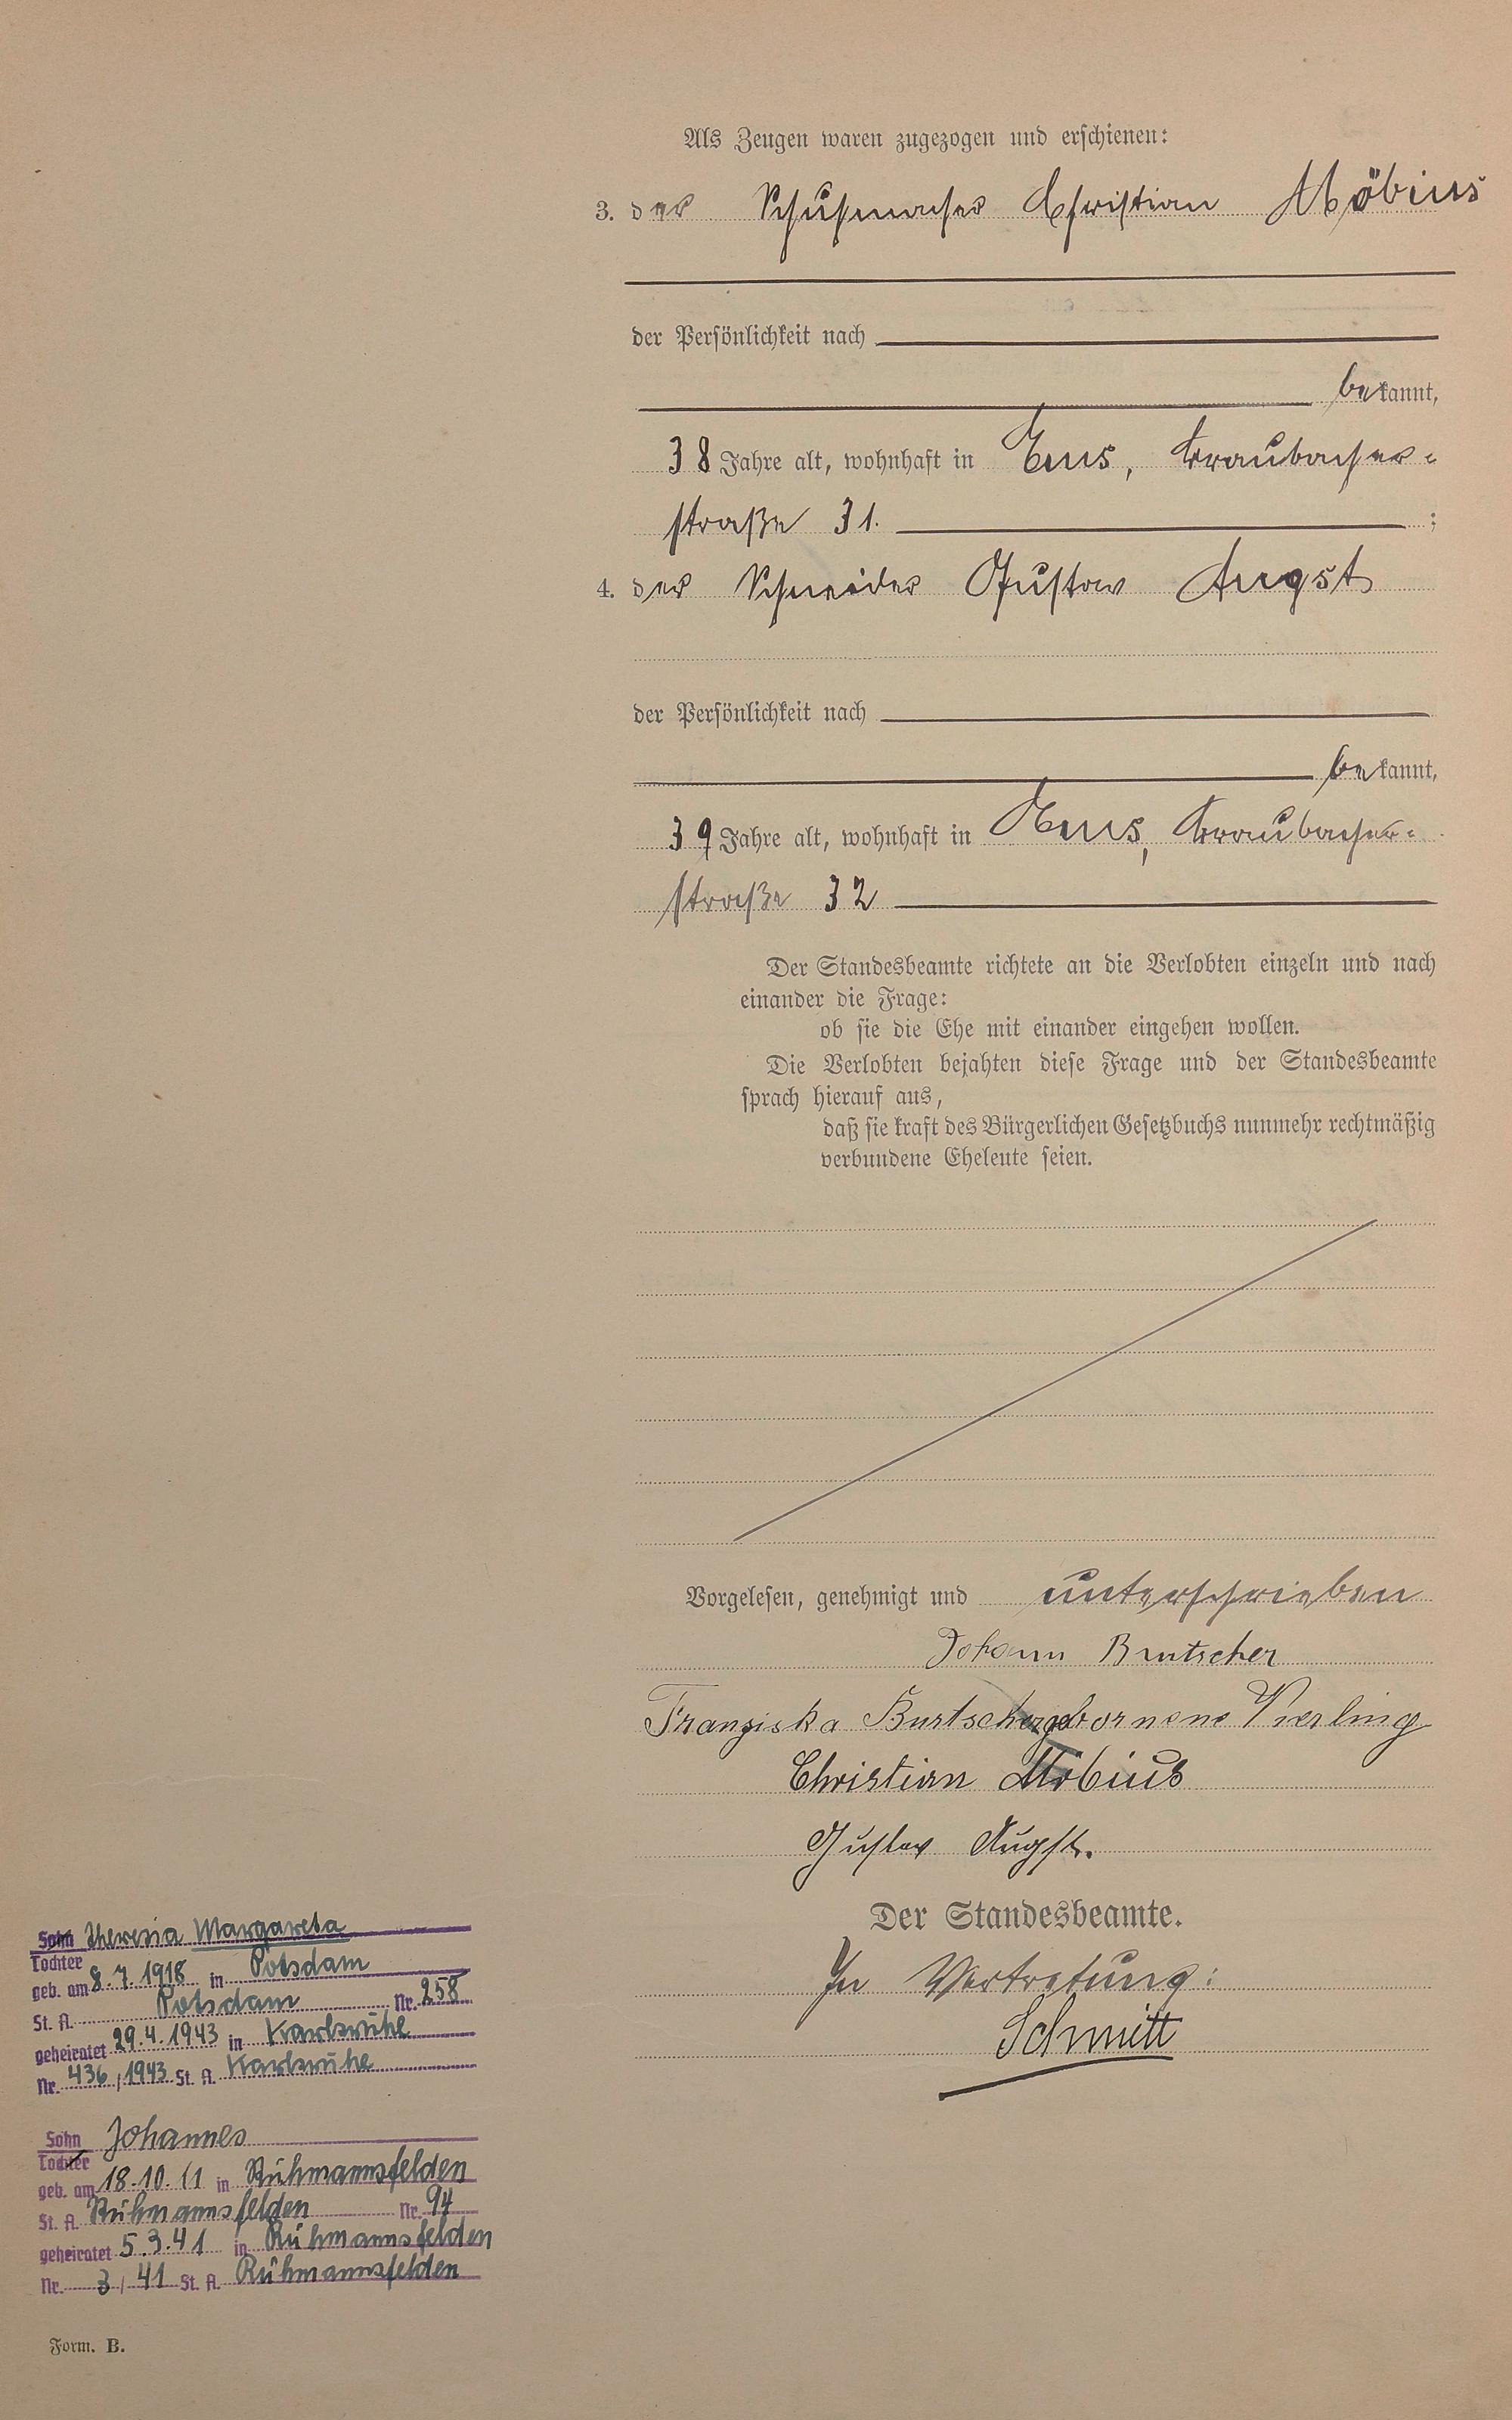 Als Zeugen waren zugezogen und erschienen:
3. der Schuhmacher Christian Möbius
der Persönlichkeit nach
bekannt,
38 Jahre alt, wohnhaft in Ems, Braubacher-
straße 31. ;
4. der Schneider Gustav Augst
der Persönlichkeit nach
bekannt,
39 Jahre alt, wohnhaft in Ems, Braubacher-
straße 32
Der Standesbeamte richtete an die Verlobten einzeln und nach
einander die Frage:
ob sie die Ehe mit einander eingehen wollen.
Die Verlobten bejahten diese Frage und der Standesbeamte
sprach hierauf aus,
daß sie kraft des Bürgerlichen Gesetzbuchs nunmehr rechtmäßig
verbundene Eheleute seien.
Vorgelesen, genehmigt und unterschrieben
Johann Brutscher
Franziska Burtscher gebornene Vierling
Christian Möbius
Gustav Augst.
Der Standesbeamte.
In Vertretung:
Schmitt
Sohn Theresia Margareta
Tochter
geb. am 8.7.1918 in Potsdam
St. A. Potsdam Nr. 258
geheiratet 29.4.1943 in Karlsruhe
Nr. 436/1943 St. A. Karlsruhe
Sohn Johannes
Tochter
geb. am 18.10.11 in Ruhmannsfelden
St. A. Ruhmannsfelden Nr. 94
geheiratet 5.3.41 in Ruhmannsfelden
Nr. 3/41 St. A. Ruhmannsfelden
Form. B.